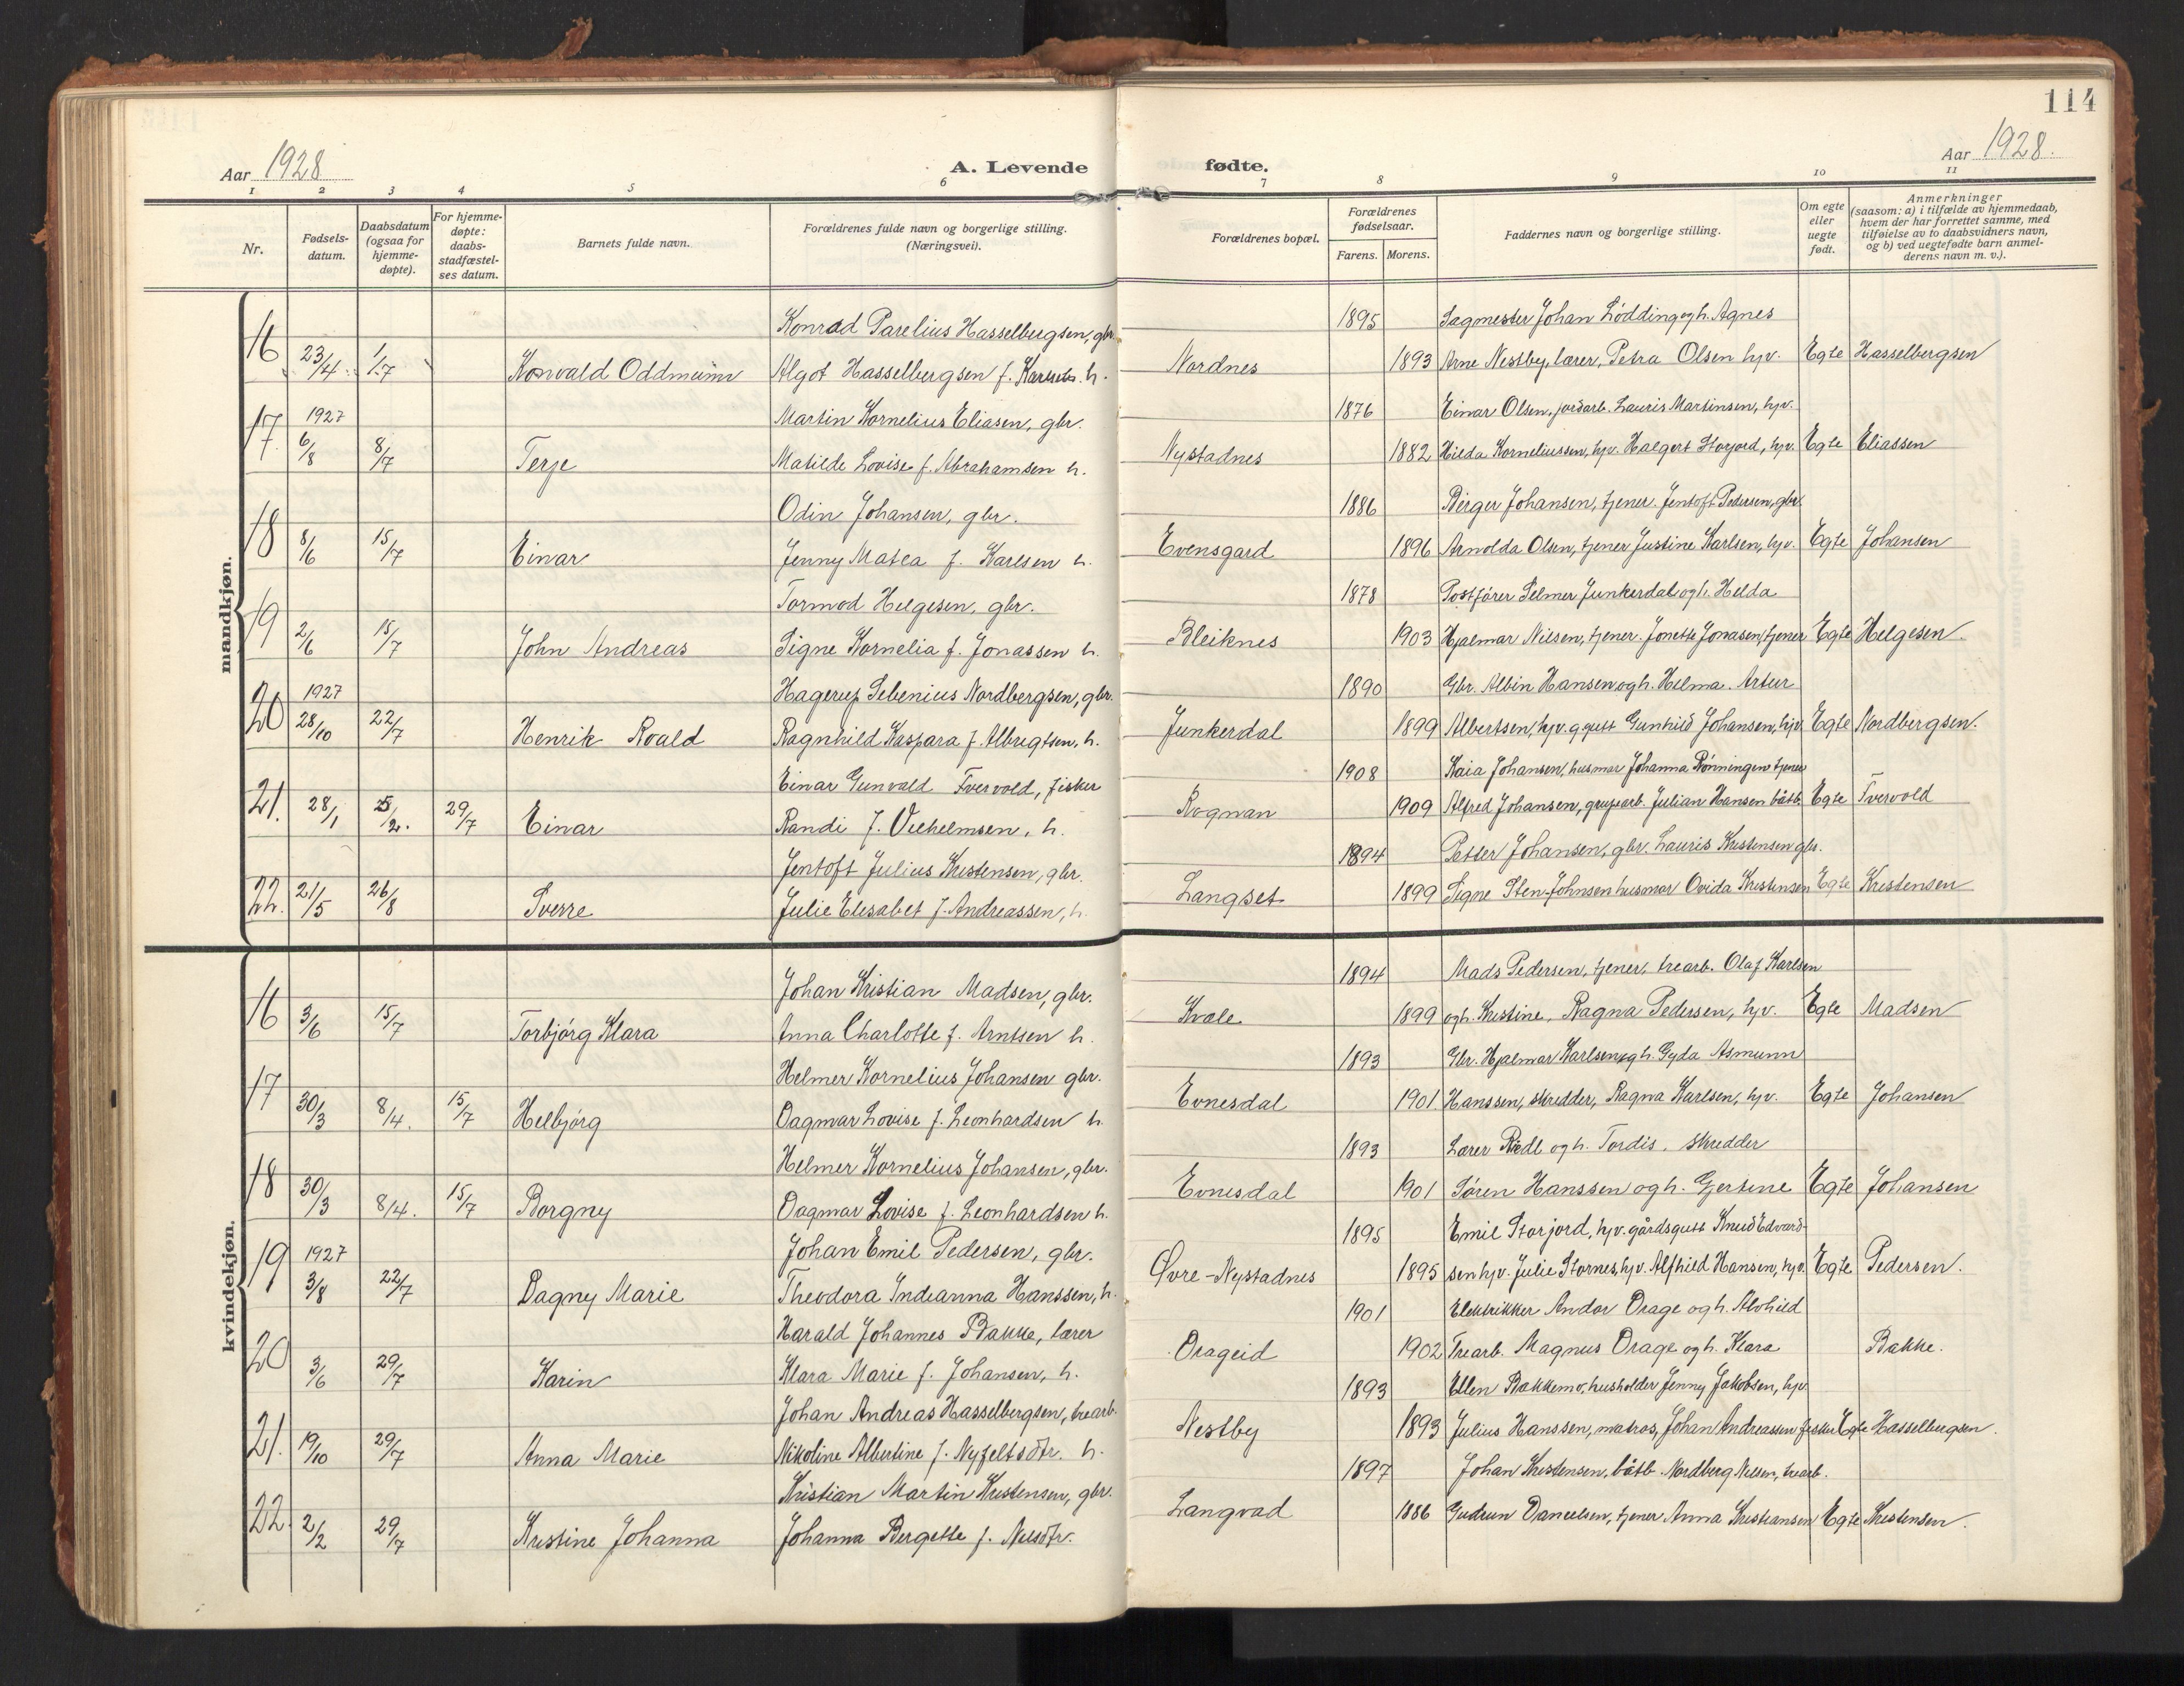 114
Aar 1928
A. Levende fødte.
Aar 1928.
1 2 3 4 5 6 7 8 9 10 11
Nr.
Fødsels-
datum.
Daabsdatum
(ogsaa for
hjemme-
døpte).
For hjemme-
døpte:
daabs-
stadfæstel-
ses datum.
Barnets fulde navn.
Forældrenes fulde navn og borgerlige stilling.
(Næringsvei).
Forældrenes bopæl.
Forældrenes
fødselsaar.
Farens. Morens.
Faddernes navn og borgerlige stilling.
Om egte
eller
uegte
født.
Anmerkninger
(saasom: a) i tilfælde av hjemmedaab,
hvem der har forrettet samme, med
tilføielse av to daabsvidners navn,
og b) ved uegtefødte barn anmel-
derens navn m. v.).
mandkjøn.
Konrad Parelius Hasselbergsen, gbr. 1895 Sagmester Johan Lödding og h. Agnes
16 23/4 1/7 Konvald Oddmunn Algot Hasselbergsen f. h. Nordnes 1893 Arne Nestby, lærer, Petra Olsen hjv. Egte Hasselbergsen
1927 Martin Kornelius Eliasen, gbr. 1876 Einar Olsen, jordarb. Lauris Martinsen, hjv.
17. 6/8 8/7 Terje Matilde Lovise f. Abrahamsen h. Nystadnes 1882 Hilda Korneliussen, hjv. Halgert Storjord, hjv. Egte Eliassen
Odin Johansen, gbr. 1886 Birger Johansen, tjener. Jentoft Pedersen, gbr.
18 8/6 15/7 Einar Jenny Matea f. Karlsen h. Evensgard 1896 Arnolda Olsen, tjener Justine Karlsen, hjv. Egte Johansen
Tormod Helgesen, gbr. 1878 Postfører Selmer Junkerdal og h. Helda
19 2/6 15/7 John Andreas Signe Kornelia f. Jonassen h. Bleiknes 1903 Hjalmar Nilsen, tjener. Jonette Jonasen, tjener Egte Helgesen.
1927 Hagerup Sebenius Nordbergsen, gbr. 1890 Gbr. Albin Hansen og h. Helma. Artur
20 28/10 22/7 Henrik Roald Ragnhild Kaspara f. Albrigtsen, h. Junkerdal 1899 Albertsen, hjv. g.gutt Gunhild Johansen, hjv. Egte Nordbergsen.
Einar Gunvald Tvervold, fisker 1908 Kaia Johansen, husmor Johanna Rönningen tjener
21. 28/1 5/2. 29/7 Einar Randi f. Vilhelmsen, h. Rognan 1909 Alfred Johansen, grupearb. Julian Hansen båtb. Egte Tvervold
Jentoft Julius Kristensen, gbr. 1894 Petter Johansen, gbr. Lauris Kristensen gbr.
22. 21/5 26/8 Sverre Julie Elisabet f. Andreassen, h. Langset 1899 Signe Sten-Johnsen husmor Ovida Kristensen Egte Kristensen
kvindekjøn.
Johan Kristian Madsen, gbr. 1894 Mads Pedersen, tjener, trearb. Olaf Karlsen
16 3/6 15/7 Torbjörg Klara Anna Charlotte f. Arntsen h. Kvale 1899 og h. Kristine, Ragna Pedersen, hjv. Egte Madsen
Helmer Kornelius Johansen gbr. 1893 Gbr. Hjalmar Karlsen og h. Gyda Asmunn
17 30/3 8/4. 15/7 Helbjörg Dagmar Lovise f. Leonhardsen h. Evnesdal 1901 Hanssen, skredder, Ragna Karlsen, hjv. Egte Johansen
Helmer Kornelius Johansen, gbr. 1893 Lærer og h. Tordis, skredder
18 30/3 8/4. 15/7 Borgny Dagmar Lovise f. Leonhardsen h. Evnesdal 1901 Søren Hanssen og h. Gjertine Egte Johansen
1927 Johan Emil Pedersen, gbr. 1895 Emil Storjord, hjv. gårdsgutt Knud Edvard-
19 3/8 22/7 Dagny Marie Theodora Indianna Hanssen, h. Øvre-Nystadnes 1895 sen hjv. Julie Stornes, hjv. Alfhild Hansen, hjv. Egte Pedersen.
Harald Johannes Bakke, lærer 1901 Elektrikker Andor Drage og h. Alvhild
20 3/6 29/7 Karin Klara Marie f. Johansen, h. Drageid 1902 Trearb. Magnus Drage og h. Klara Bakke.
Johan Andreas Hasselbergsen, trearb. 1893 Ellen Bakkemo, husholder Jenny Jakobsen, hjv.
21. 19/10 29/7 Anna Marie Nikoline Albertine f. Nyfeltsdtr. h. Nestby 1893 Julius Hanssen, matros, Johan Andreassen fisker Egte Hasselbergsen.
Kristian Martin Kristensen, gbr. 1897 Johan Kristensen, båtb. Nordberg Nilsen, trearb.
22. 2/2 29/7 Kristine Johanna Johanna Bergette f. Nilsdtr. Langvad 1886 Gudrun Danielsen, tjener Anna Kristiansen Egte Kristensen.